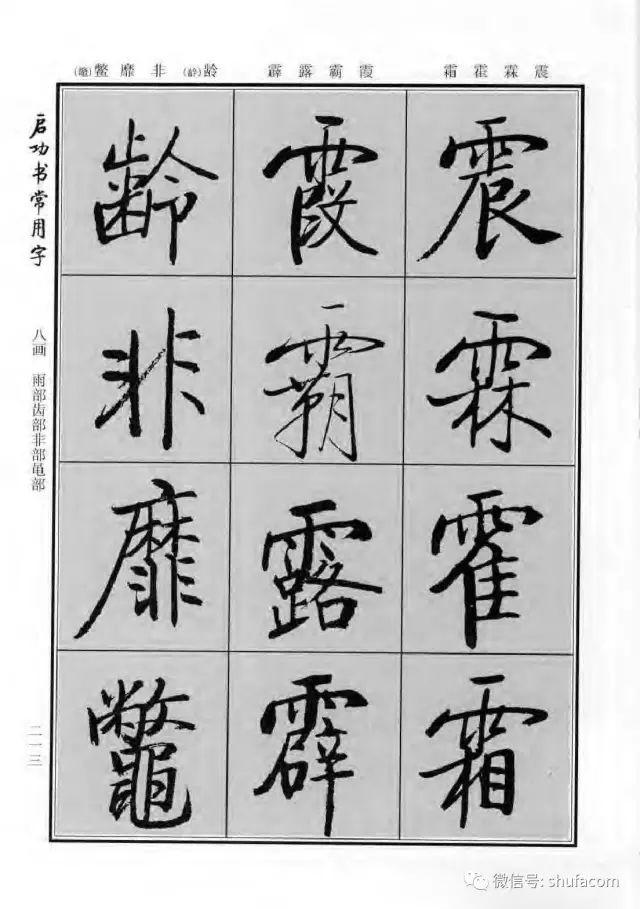 震霖霍霜 霞霸露霹 龄(齡)非靡鳖(鼈)
震霖霍霜
霞霸露霹
齡非靡鼈
启功书常用字
八画 雨部齿部非部黾部
二一三
微信号: shufacom